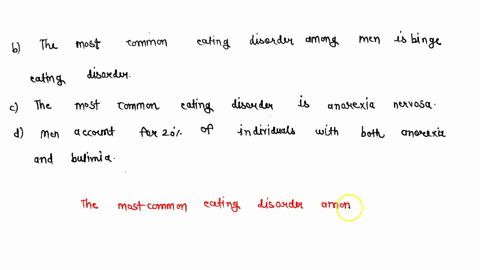 b) The most common eating disorder among men is binge
eating disorder.
c) The most common eating disorder is anorexia nervosa.
d) Men account for 20% of individuals with both anorexia
and bulimia.
The most common eating disorder amon